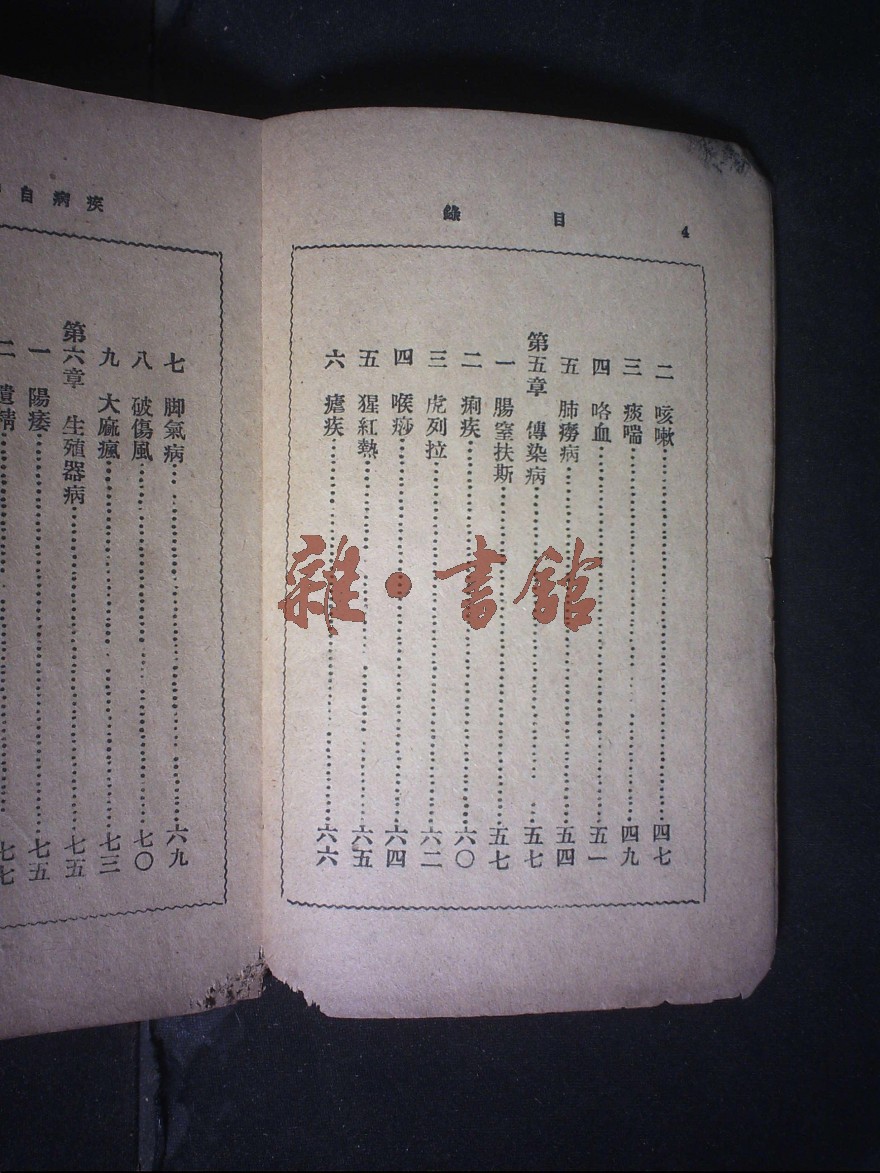 目 錄 4
二 咳嗽 四七
三 痰喘 四九
四 咯血 五一
五 肺癆病 五四
第五章 傳染病 五七
一 腸窒扶斯 五七
二 痢疾 六〇
三 虎列拉 六二
四 喉痧 六四
五 猩紅熱 六五
六 瘧疾 六六
疾病自
七 脚氣病 六九
八 破傷風 七〇
九 大麻瘋 七三
第六章 生殖器病 七五
一 陽痿 七五
二 遺精 七七
雜·書館